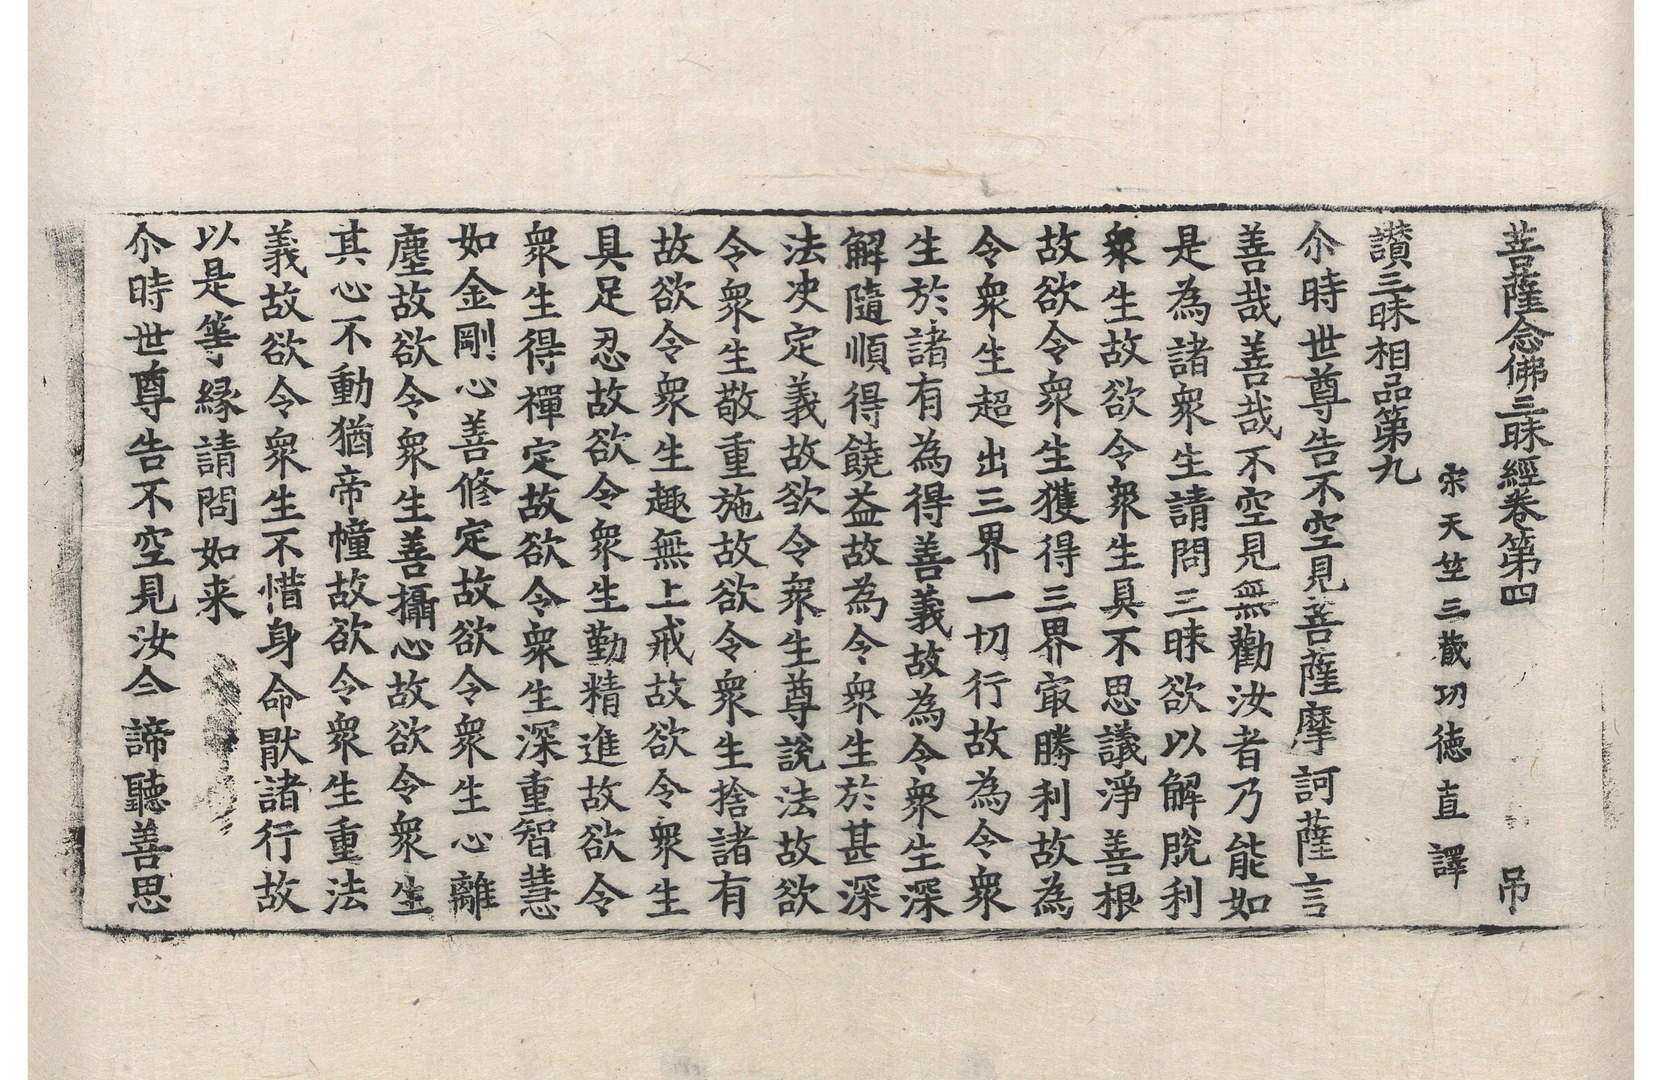 菩薩念佛三昧經卷第四 吊
宋天竺三藏功徳直譯
讃三昧相品第九
尒時世尊告不空見菩薩摩訶薩言
善哉善哉不空見無勸汝者乃能如
是為諸衆生請問三昧欲以解脫利
衆生故欲令衆生具不思議淨善根
故欲令衆生獲得三界㝡勝利故為
令衆生超出三界一切行故為令衆
生於諸有為得善義故為令衆生深
解隨順得饒益故為令衆生於甚深
法决定義故欲令衆生尊說法故欲
令衆生敬重施故欲令衆生捨諸有
故欲令衆生趣無上戒故欲令衆生
具足忍故欲令衆生勤精進故欲令
衆生得禪定故欲令衆生深重智慧
如金剛心善修定故欲令衆生心離
塵故欲令衆生善攝心故欲令衆生
其心不動猶帝幢故欲令衆生重法
義故欲令衆生不惜身命猒諸行故
以是等縁請問如来
尒時世尊告不空見汝今諦聽善思